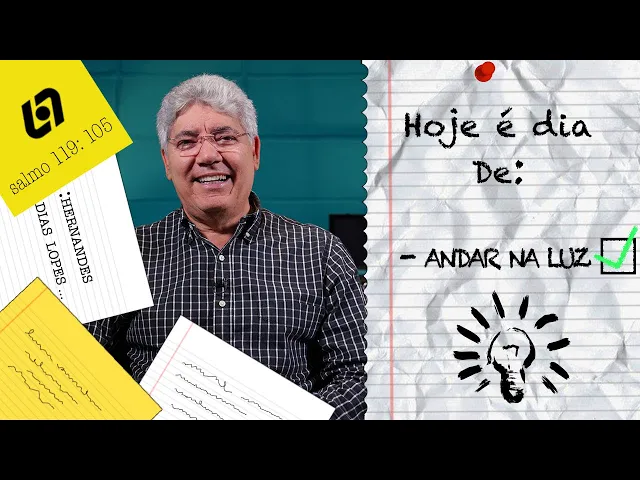 salmo 119: 105
:HERNANDES
DIAS LOPES ...
Hoje é dia
De:
- ANDAR NA LUZ